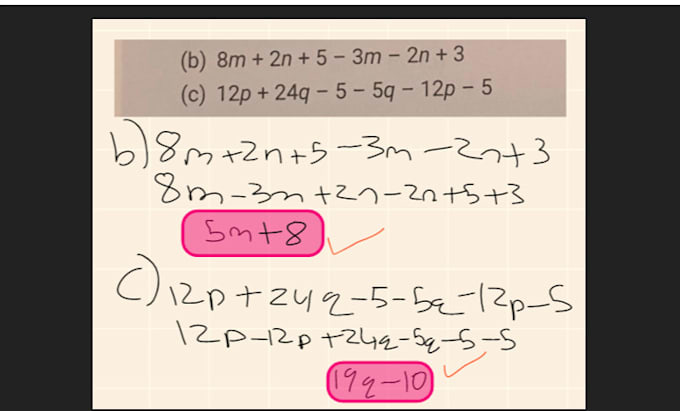 (b) 8m + 2n + 5 − 3m − 2n + 3
(c) 12p + 24q − 5 − 5q − 12p − 5
b) 8m+2n+5-3m-2n+3
8m-3m+2n-2n+5+3
5m+8
C) 12p+24q-5-5q-12p-5
12p-12p+24q-5q-5-5
19q-10